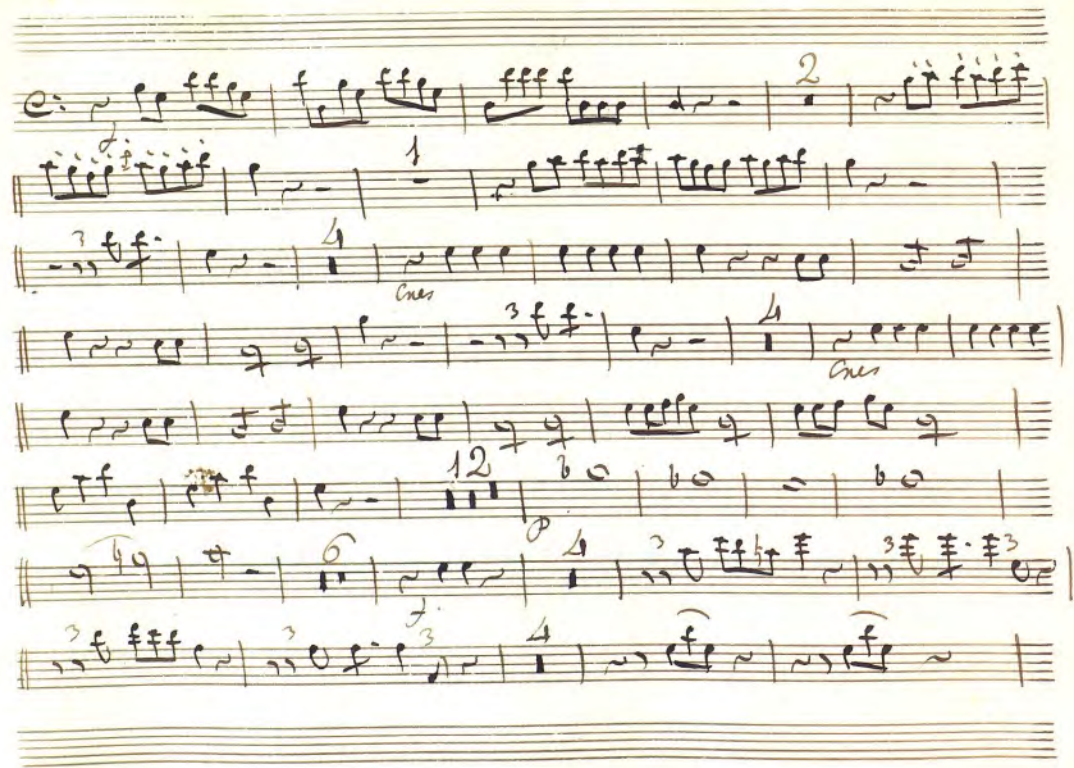 C: f. 2
1
3 4 Cres
3 4 Cres
12 P
6 f. 4 3 3 3
3 3 3 4